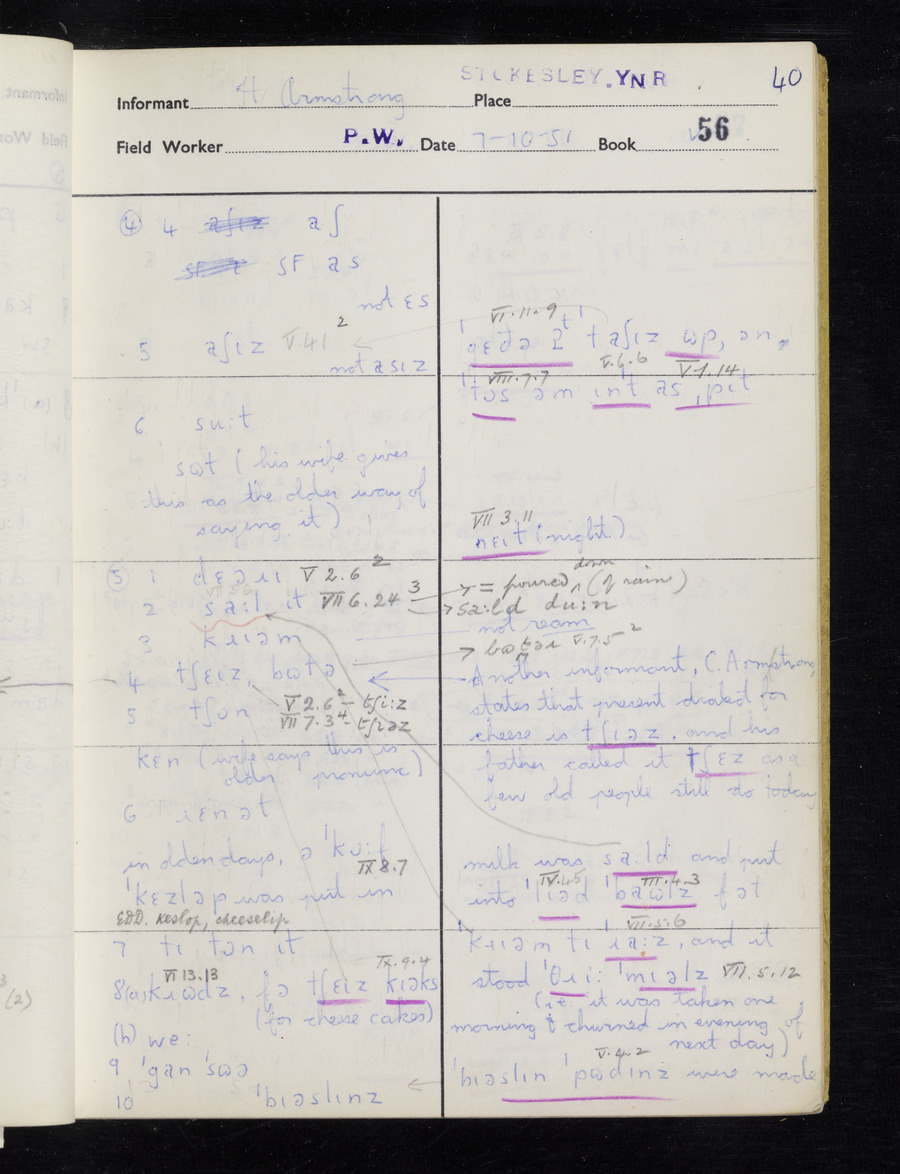 STOKESLEY, YNR
40
Informant H Armstrong Place
Field Worker P.W. Date 7-10-51 Book 56
④ 4 aʃ
SF as
not ɛs
5 aʃɪz V.4.1 2
not asɪz
6 su:t
sɷt (his wife gives
this as the older way of
saying it)
⑤ 1 dɛəɹɪ V 2.6 2
2 sa:l it VII 6.24 3
3 kɹɪəm
4 tʃɛɪz, bɷtə
5 tʃɔn V 2.6 2 – tʃi:z
VII 7.3 4 – tʃiəz
kɛn (wife says this is
older pronunc)
6 ɹɛnət
in olden days, ə ˈkʋ:f
IX 8.7
ˈkɛzləp was put in
EDD. keslop, cheeselip
7 tɪ tɔn ɪt
VI 13.13 IX.9.4
8(a) kɹɷdz, fə tʃɛɪz kɪəks
(for cheese cakes)
(b) we:
9 ˈgan ˈsɷə
10 ˈbɪəslɪnz
VI.11.9
t aʃɪz ɷp, ən
VIII.7.7 V.6.6 V.1.14
ˈtɔs əm ɪnt as ˌpɪt
VII 3.11
nɛɪt (night.)
→ = poured down (of rain)
→ sa:ld du:n
not ream
→ bɷtəɹ V.7.5 2
Another informant, C. Armstrong
states that present dialect for
cheese is tʃɪəz, and his
father called it tʃɛz as a
few old people still do today
milk was sa:ld and put
IV.4.5 III.4.3
into ˈlɪəd ˈbaɷlz fət
VII.5.6
ˈkɹɪəm tɪ ˈɹa:z, and it
stood ˈθɹi: ˈmɪəlz VII.5.12
(i.e. it was taken one
morning & churned in evening of
next day)
V.4.2
ˈbɪəslɪn ˈpɷdɪnz were made
3
(2)